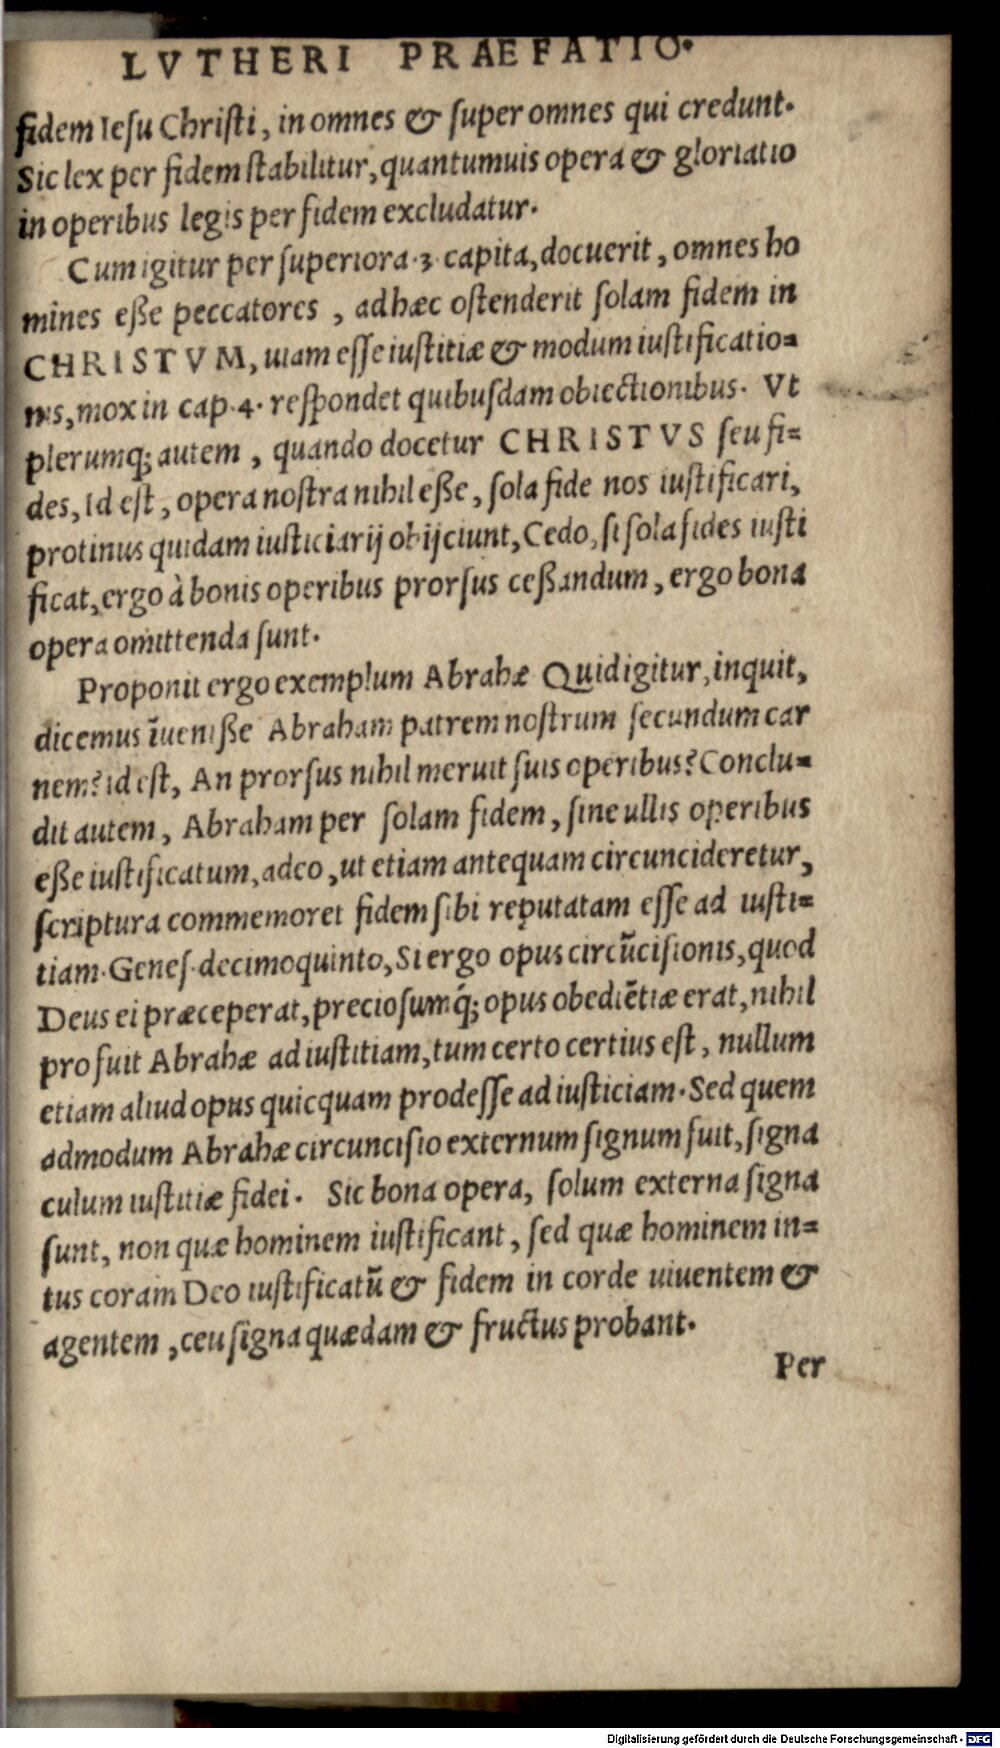 LVTHERI PRAEFATIO.
fidem Iesu Christi, in omnes & super omnes qui credunt.
Sic lex per fidem stabilitur, quantumuis opera & gloriatio
in operibus legis per fidem excludatur.
Cum igitur per superiora .3. capita, docuerit, omnes ho
mines eße peccatores, adhæc ostenderit solam fidem in
CHRISTVM, uiam esse iustitiæ & modum iustificatio=
nis, mox in cap. 4. respondet quibusdam obiectionibus. Vt
plerumq; autem, quando docetur CHRISTVS seu fi=
des, Id est, opera nostra nihil eße, sola fide nos iustificari,
protinus quidam iusticiarij obijciunt, Cedo, si sola fides iusti
ficat, ergo à bonis operibus prorsus ceßandum, ergo bona
opera omittenda sunt.
Proponit ergo exemplum Abrahæ Quid igitur, inquit,
dicemus īueniße Abraham patrem nostrum secundum car
nem? id est, An prorsus nihil meruit suis operibus? Conclu=
dit autem, Abraham per solam fidem, sine ullis operibus
eße iustificatum, adeo, ut etiam antequam circuncideretur,
scriptura commemoret fidem sibi reputatam esse ad iusti=
tiam. Genes. decimoquinto, Si ergo opus circūcisionis, quod
Deus ei præceperat, preciosumq́; opus obediētiæ erat, nihil
profuit Abrahæ ad iustitiam, tum certo certius est, nullum
etiam aliud opus quicquam prodesse ad iusticiam. Sed quem
admodum Abrahæ circuncisio externum signum fuit, signa
culum iustitiæ fidei. Sic bona opera, solum externa signa
sunt, non quæ hominem iustificant, sed quæ hominem in=
tus coram Deo iustificatū & fidem in corde uiuentem &
agentem, ceu signa quædam & fructus probant.
Per
Digitalisierung gefördert durch die Deutsche Forschungsgemeinschaft - DFG